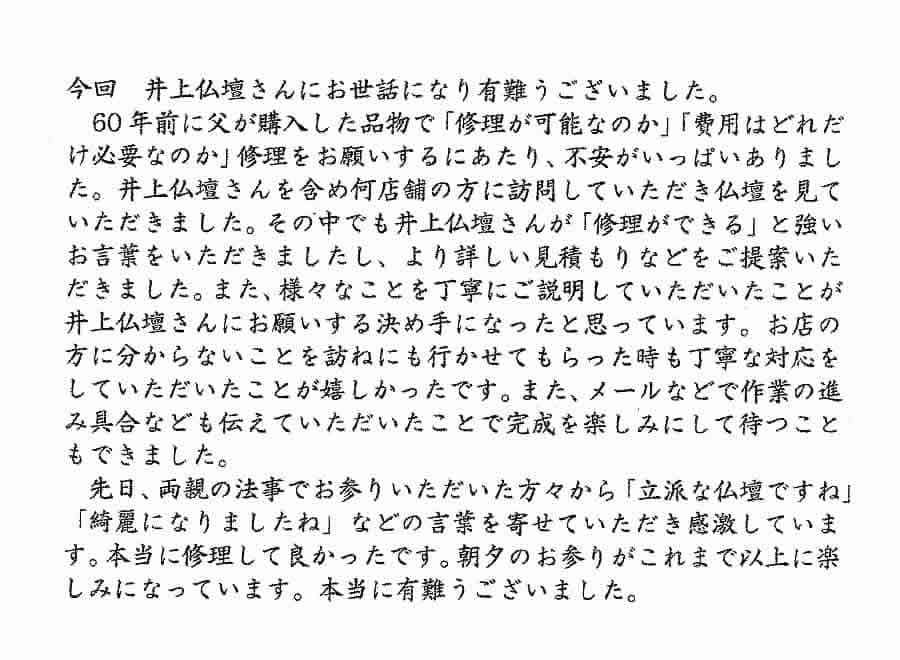 今回　井上仏壇さんにお世話になり有難うございました。
　60年前に父が購入した品物で「修理が可能なのか」「費用はどれだ
け必要なのか」修理をお願いするにあたり、不安がいっぱいありまし
た。井上仏壇さんを含め何店舗の方に訪問していただき仏壇を見て
いただきました。その中でも井上仏壇さんが「修理ができる」と強い
お言葉をいただきましたし、より詳しい見積もりなどをご提案いた
だきました。また、様々なことを丁寧にご説明していただいたことが
井上仏壇さんにお願いする決め手になったと思っています。お店の
方に分からないことを訪ねにも行かせてもらった時も丁寧な対応を
していただいたことが嬉しかったです。また、メールなどで作業の進
み具合なども伝えていただいたことで完成を楽しみにして待つこと
もできました。
　先日、両親の法事でお参りいただいた方々から「立派な仏壇ですね」
「綺麗になりましたね」などの言葉を寄せていただき感激していま
す。本当に修理して良かったです。朝夕のお参りがこれまで以上に楽
しみになっています。本当に有難うございました。